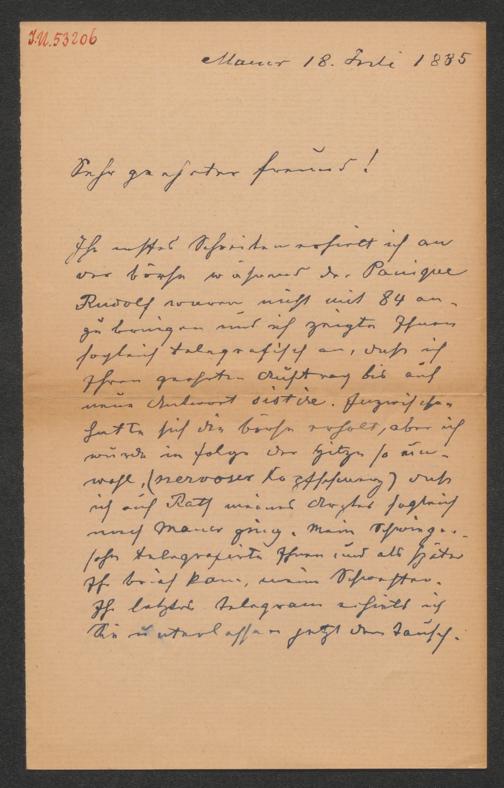 I.N. 53206
Mauer 18. Juli 1885
Sehr geehrter Freund!
Ihr erstes Schreiben erhielt ich an
der Börse während der Panique
Rudolf waren nicht mit 84 an-
zubringen und ich zeigte Ihnen
sogleich telegrafisch an, daß ich
Ihren geehrten Auftrag bis auf
neue Antwort sistire. Inzwischen
hatte sich die Börse erholt, aber ich
wurde in Folge der Hitze so un-
wohl, (nervoser Kopfschmerz) daß
ich auf Rath meines Arztes sogleich
nach Mauer ging. Mein Schwieger-
sohn telegrafirte Ihnen und als später
Ihr Brief kam, mein Schwester.
Ihr letztes Telegram erhielt ich
Sie unterlassen jetzt den Tausch.